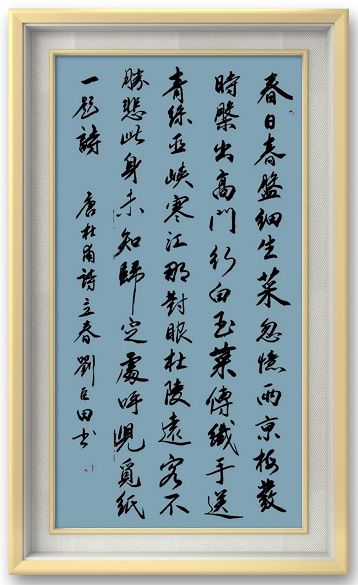 春日春盤細生菜忽憶兩京梅發
時槃出高門行白玉菜傳纖手送
青絲巫峽寒江那對眼杜陵遠客不
勝悲此身未知歸定處呼兒覓紙
一題詩 唐杜甫詩立春劉田書